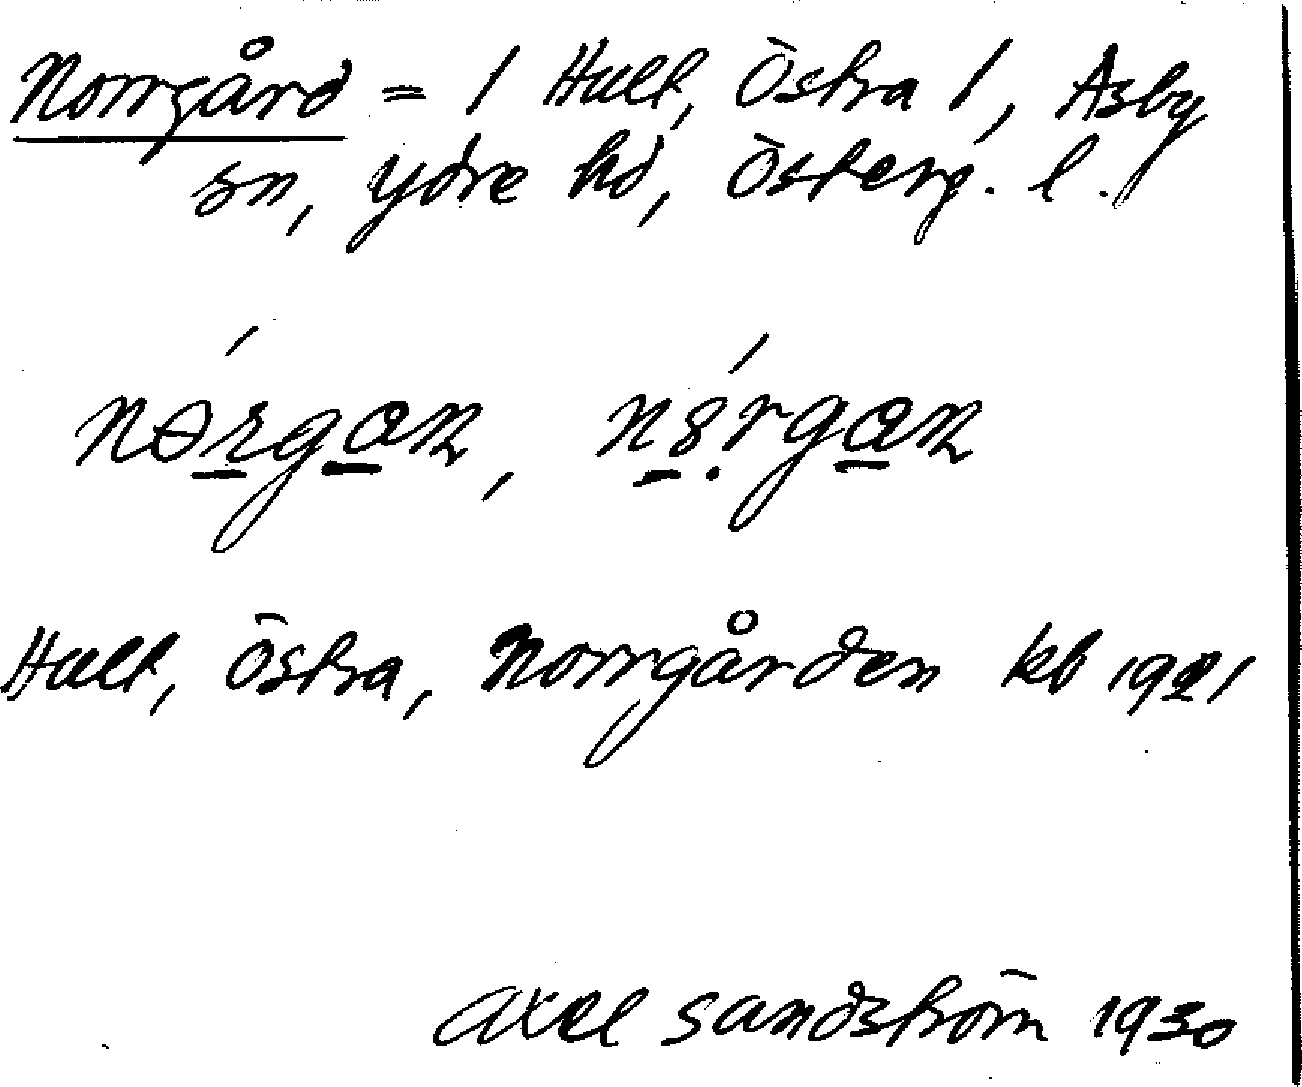 Norrgård = 1 Hult, Östra 1, Asby
sn, Ydre hd, Österg. l.
Hult, Östra, Norrgården kb 1921
Axel Sandström 1930